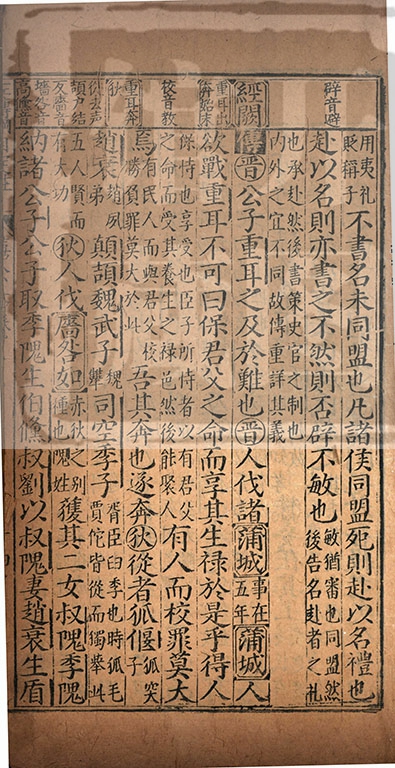 用夷礼貶稱子不書名未同盟也凡諸侯同盟死則赴以名禮也
辟音避
赴以名則亦書之不然則否辟不敏也敏猶審也同盟然後告名赴者之礼
也承赴然後書策史官之制也內外之宜不同故傳重詳其義
經闕傳晋公子重耳之及於難也晋人伐諸蒲城事在五年蒲城人
重耳出奔紹末
欲戰重耳不可曰保君父之命而享其生禄於是乎得人
保恃也享受也臣子所恃者以有君父之命而受其養生之禄邑然後能聚人
校音教
有人而校罪莫大焉有民人而與君父校勝負罪莫大於此吾其奔也遂奔狄從者狐偃狐突子
重耳奔狄
趙衰趙夙弟顛頡魏武子魏犨司空季子胥臣臼季也時狐毛賈佗皆從而獨舉此五人賢而有大功
從去声
頡户結友
狄人伐廧咎如赤狄之别種也隗姓獲其二女叔隗季隗
廧音墻咎音高
納諸公子公子取季隗生伯鯈叔劉以叔隗妻趙衰生盾